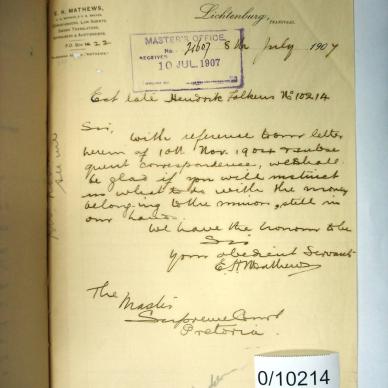 E. H. MATHEWS,
LAW AGENTS,
SWORN TRANSLATORS,
APPRAISERS & AUCTIONEERS.
P.O. Box 22
Lichtenburg,
TRANSVAAL.
8th July 1907
MASTER'S OFFICE.
No. 21607
RECEIVED
10 JUL. 1907
Est late Hendrik Falkens No 10214
Sir,
With reference to our letter
herein of 10th Nov. 1904 & subse
quent correspondence, we shall
be glad if you will instruct
us what to do with the money
belonging to the minor, still in
our hands.
We have the honour to be
Sir
Your obedient Servant
E H Mathews
The Master
Supreme Court
Pretoria
0/10214